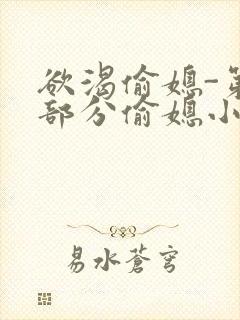 欲渴偷媳-第
部分偷媳小
易水蒼穹